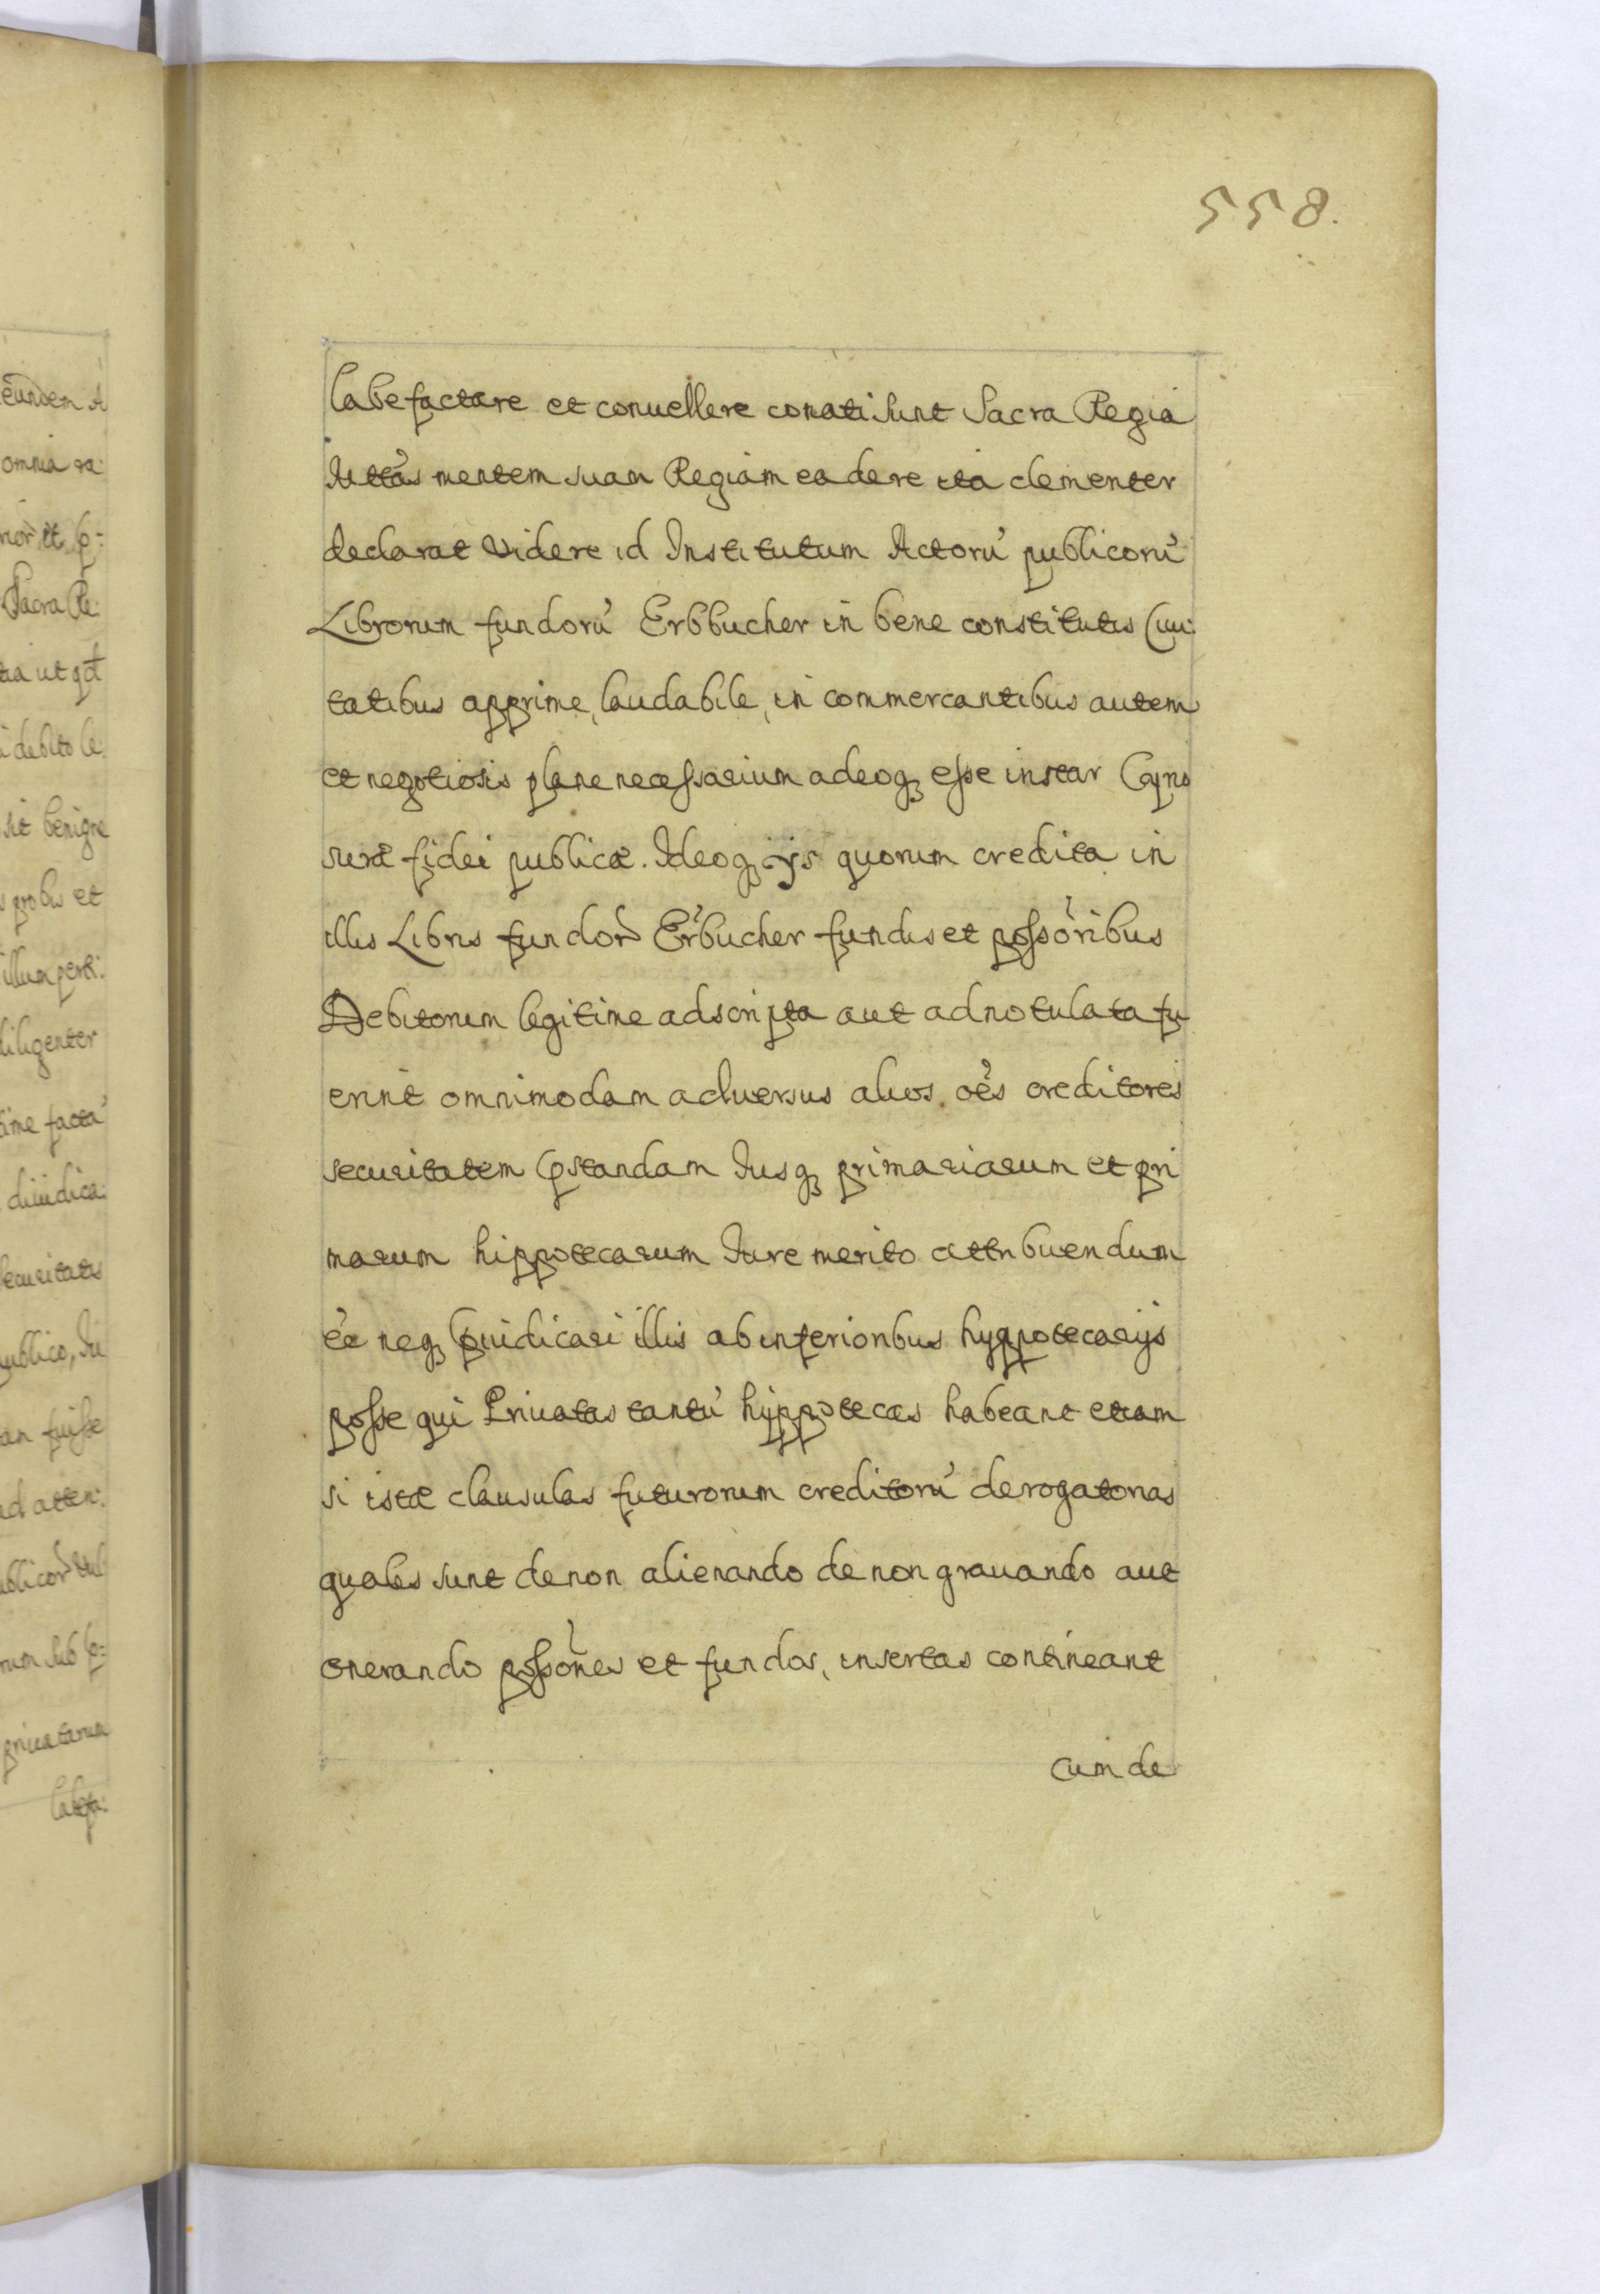 558.
labefactare et conuellere conati sunt Sacra Regia
Mttas mentem suam Regiam ea de re ita clementer
declarat videre id Institutum Actorũ publicorũ
Librorum fundorũ Erbbucher in bene constitutis Ciui:
tatibus apprime, laudabile, in commercantibus autem
et negotiosis plane necessarium adeoq esse instar Cyno
suræ fidei publicæ. Ideoq ijs quorum credita in
illis Libris fundor Erbucher fundis et possoribus
Debitorum legitime adscripta aut adnotulata fu
erint omnimodam aduersus alios oẽs creditores
securitatem pstandam Iusq primariarum et pri
marum hippotecarum Iure merito attribuendum
eẽ neq piudicari illis ab inferioribus hyppotecarijs
posse qui Priuatas tantũ hippotecas habeant etiam
si istæ clausulas futurorum creditorũ derogatorias
quales sunt de non alienando de non grauando aut
onerando possones et fundos, insertas contineant
cum de
eundem A
omnia ra:
Sacra Re:
tia ut qd
debito le:
sit benigne
probis et
illum perti:
diligenter
time facta
diiudica:
securitatis
publico, Iu
an fuisse
ad atten:
rum sub
priuatarum
labefa: